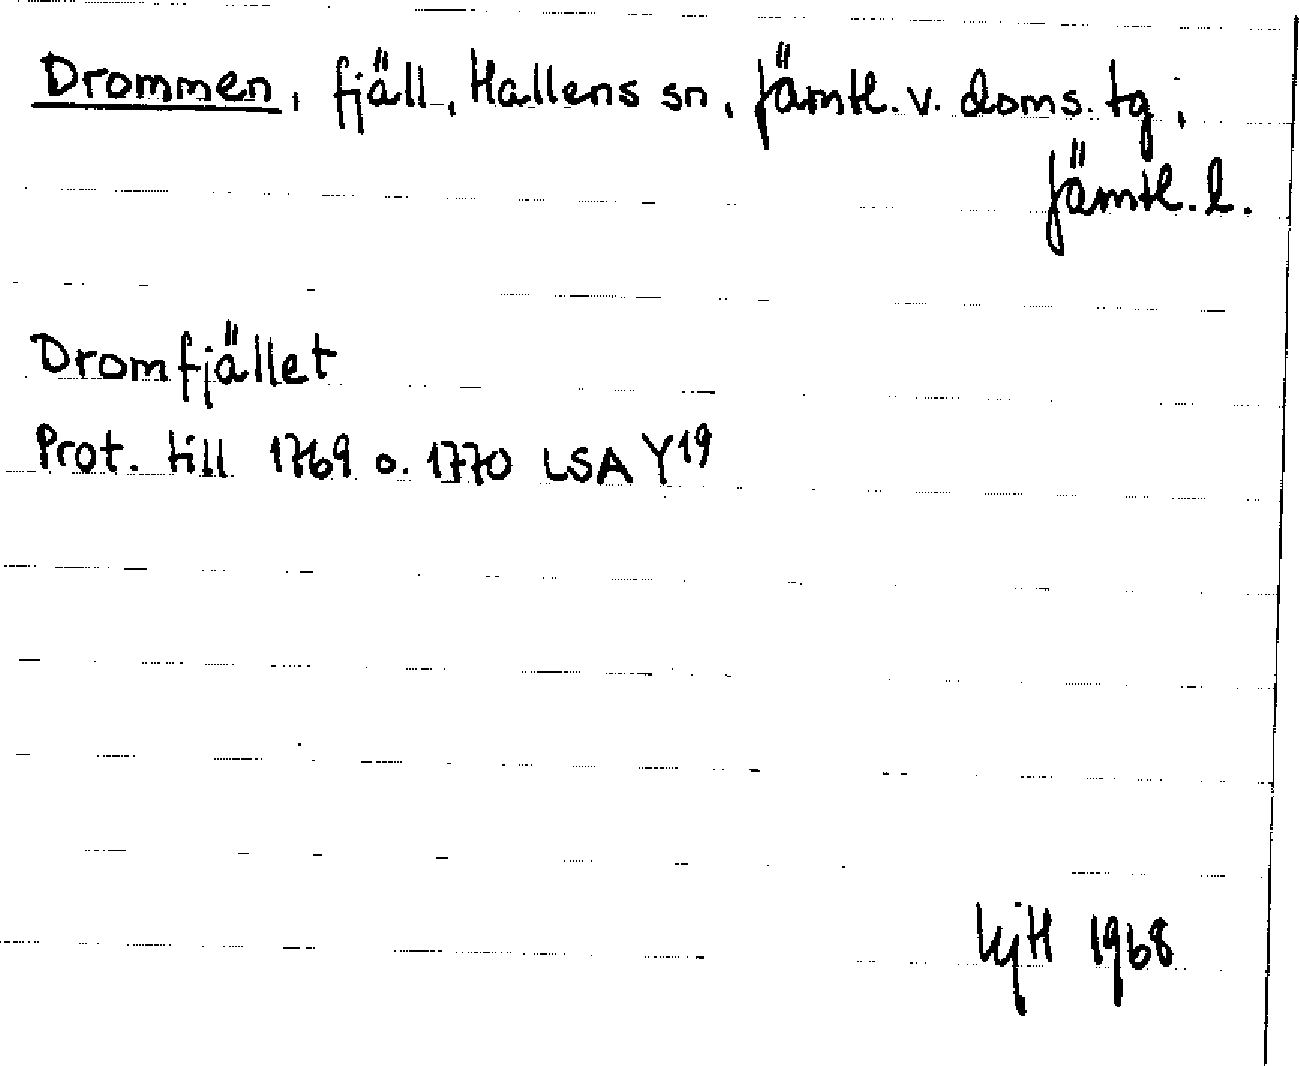 Drommen, fjäll, Hallens sn, Jämtl. v. doms. tg,
Jämtl. l.
Dromfjället
Prot. till 1769 o. 1770 LSA Y19
1968